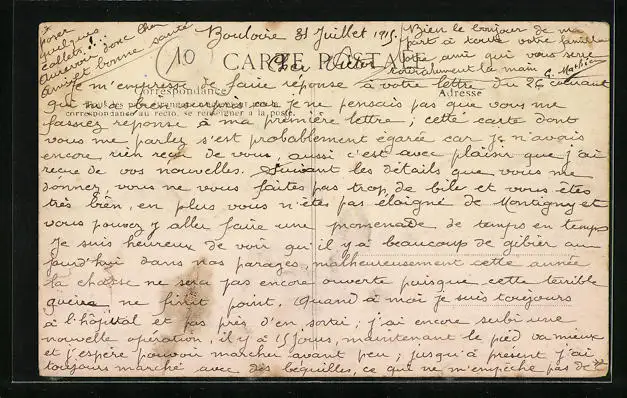 Bouloire 31 Juillet 1915.
CARTE POSTALE
Cher Victor
Correspondance
Adresse
Je m'empresse de faire réponse à votre lettre du 26 courant
qui m'a bien surpris car je ne pensais pas que vous me
correspondance au recto, se renseigner à la poste.
fassiez réponse à ma première lettre; cette carte dont
vous me parlez s'est probablement égarée car je n'avais
encore rien reçu de vous, aussi c'est avec plaisir que j'ai
reçue de vos nouvelles. Suivant les détails que vous me
donnez, vous ne vous faites pas trop de bile et vous êtes
très bien, en plus vous n'êtes pas éloigné de Montigny et
vous pouvez y aller faire une promenade de temps en temps
Je suis heureux de voir qu'il y a beaucoup de gibier au
jourd'hui dans nos parages, malheureusement cette année
la chasse ne sera pas encore ouverte puisque cette terrible
guerre ne finit point. Quand à moi je suis toujours
à l'hôpital et pas près d'en sortir; j'ai encore subi une
nouvelle opération, il y a 15 jours, maintenant le pied va mieux
et j'espère pouvoir marcher avant peu; jusqu'à présent j'ai
toujours marché avec des béquilles, ce qui ne m'empêche pas de
poser
quelques
collets!...
Aurevoir donc cher
ami et bonne santé
Bien le bonjour de ma
part à toute votre famille
Votre ami qui vous serre
cordialement la main
10